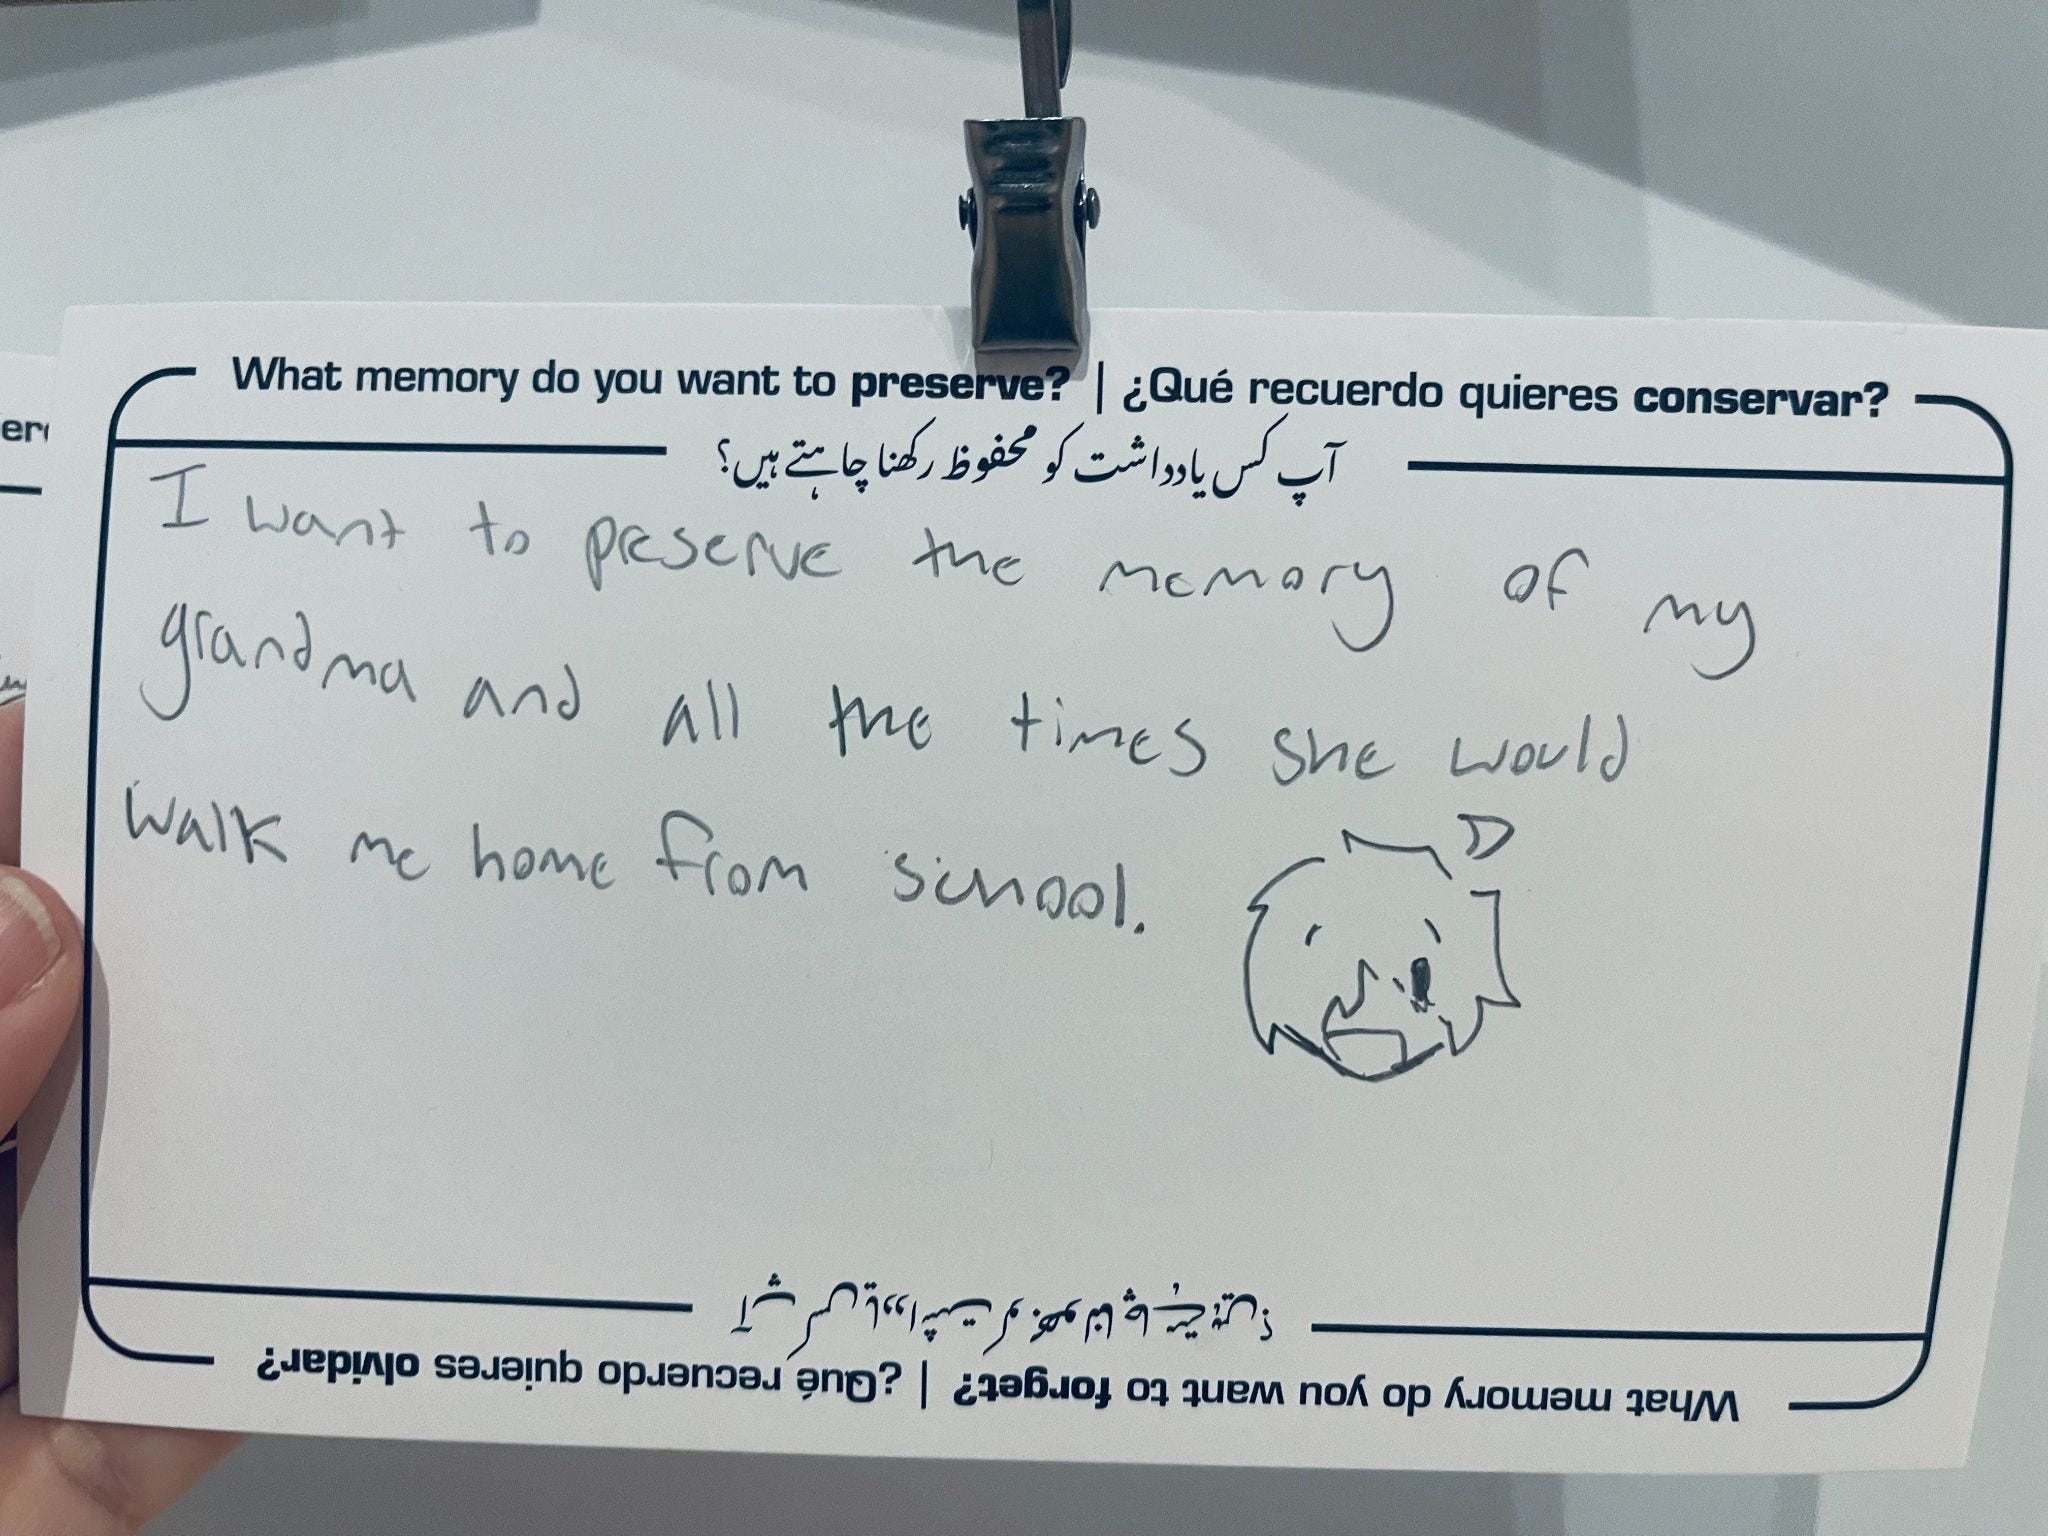 What memory do you want to preserve? | ¿Qué recuerdo quieres conservar?
آپ کس یادداشت کو محفوظ رکھنا چاہتے ہیں؟
I want to preserve the memory of my
grandma and all the times she would
walk me home from school.
What memory do you want to forget? | ¿Qué recuerdo quieres olvidar?